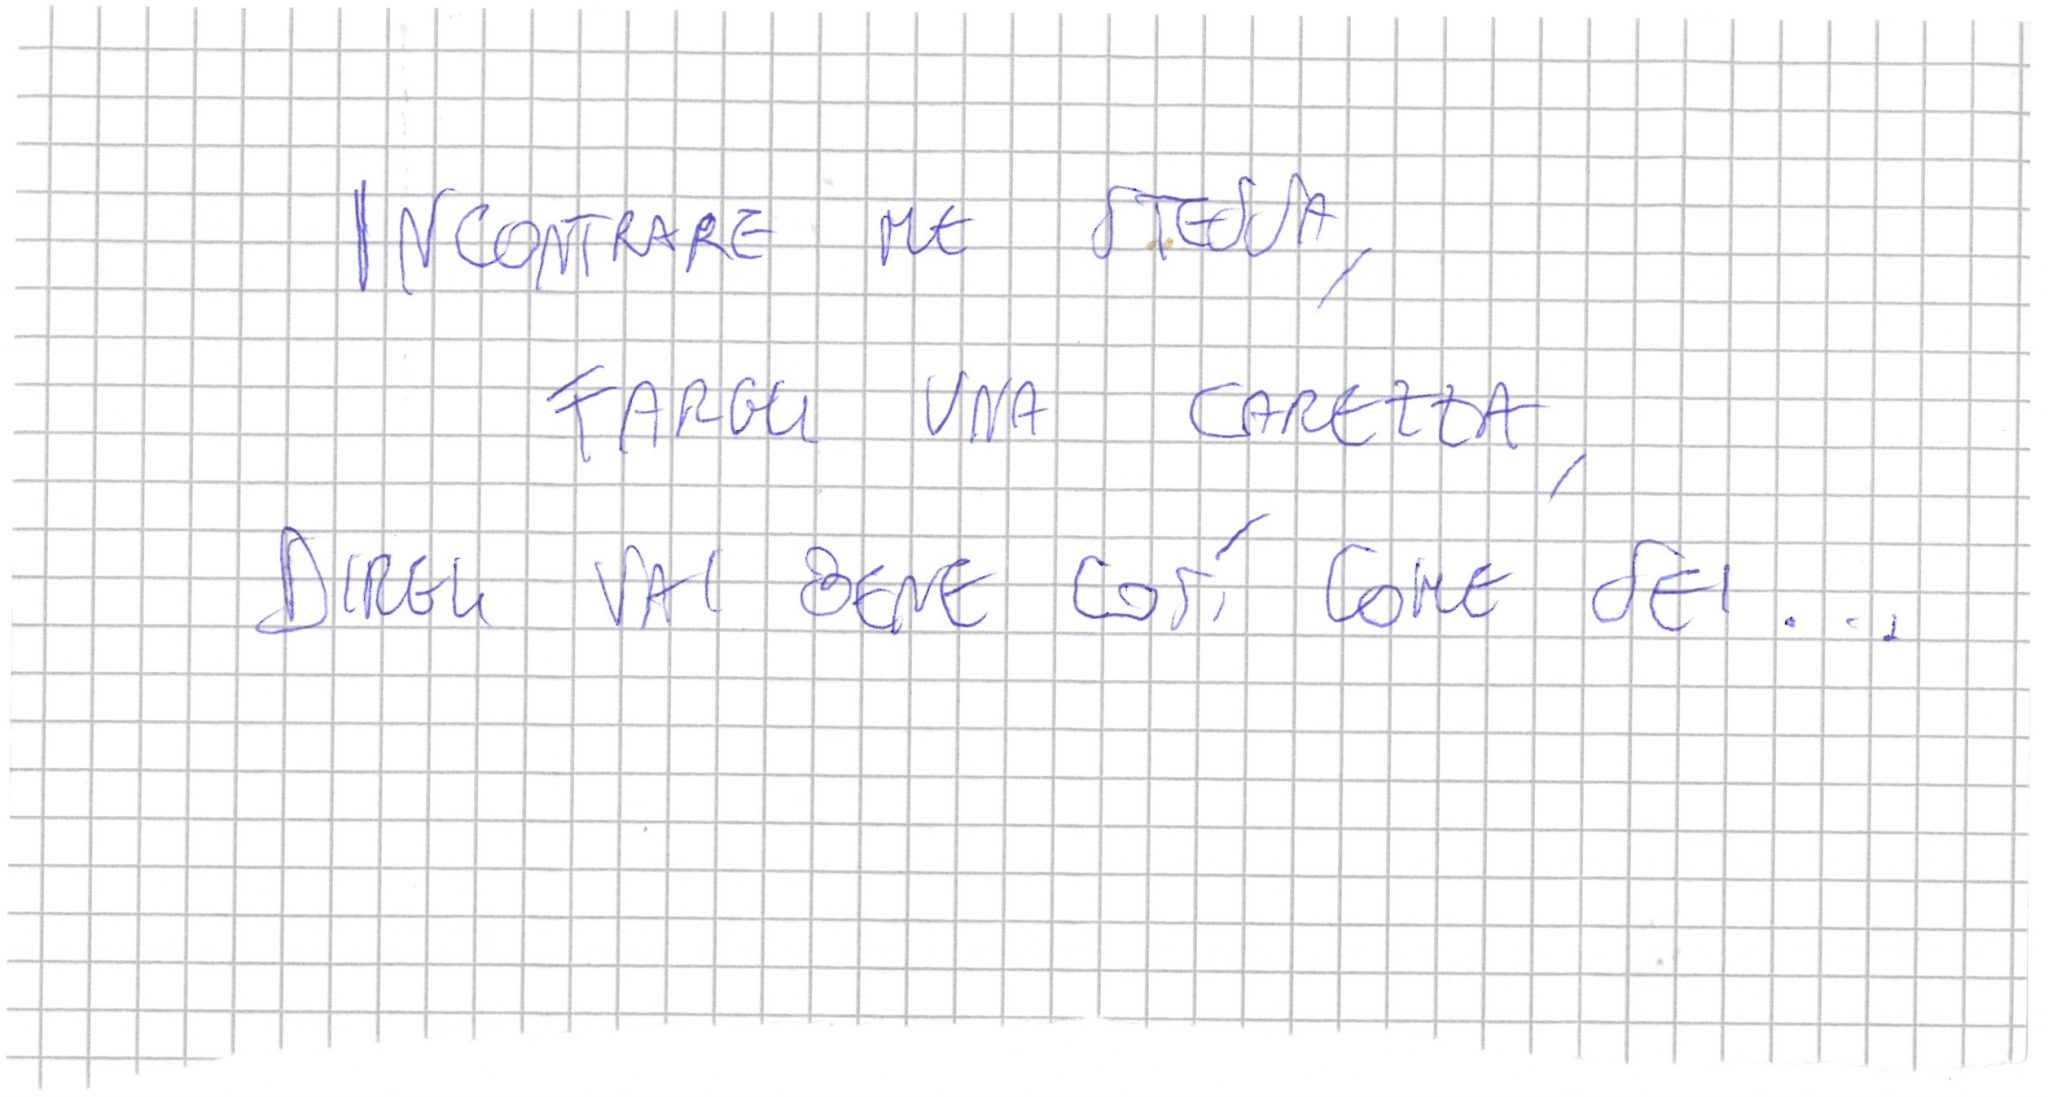 INCONTRARE ME STESSA,
FARGLI UNA CAREZZA,
DIRGLI VAI BENE COSÍ COME SEI...